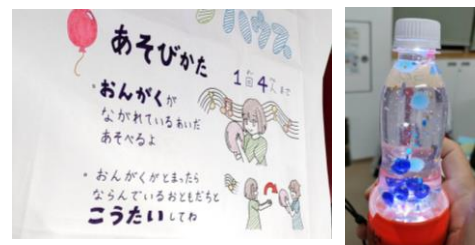 ハウス
あそびかた
1回4人まで
・おんがくが
ながれているあいだ
あそべるよ
・おんがくがとまったら
ならんでいるおともだちと
こうたいしてね